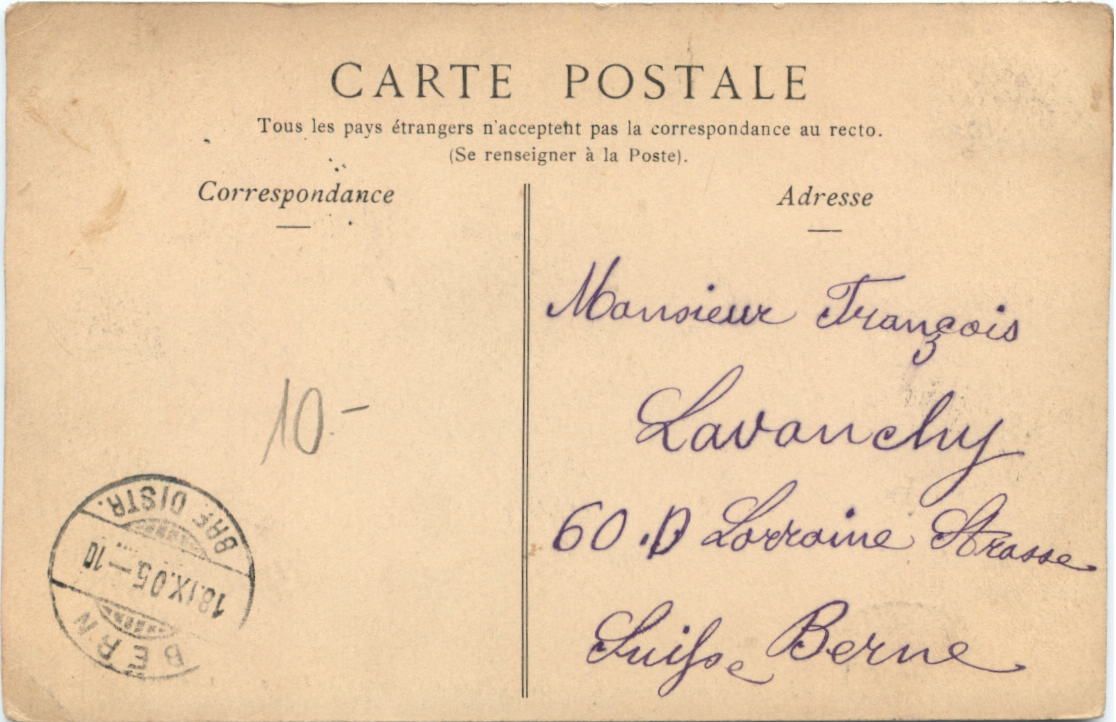 CARTE POSTALE
Tous les pays étrangers n'acceptent pas la correspondance au recto.
(Se renseigner à la Poste).
Correspondance
Adresse
Monsieur François
Lavanchy
60.D Lorraine Strasse
Suisse Berne
10.-
BRF. DISTR.
18.IX.05.-10
BERN